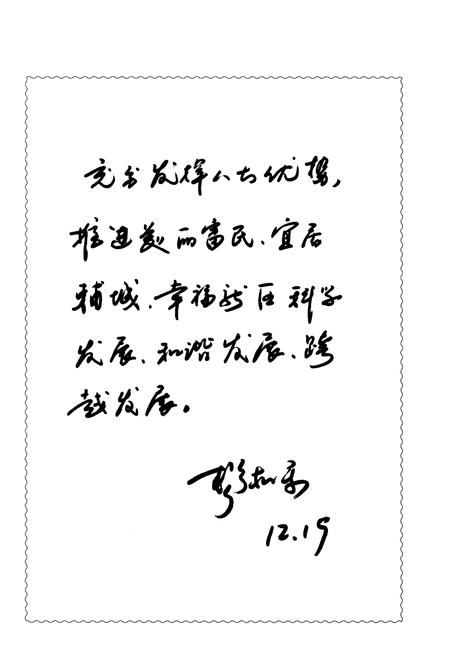 充分发挥人才优势,
推进美丽富民、宜居
辅城、幸福新区科学
发展、和谐发展、跨
越发展。
12.19